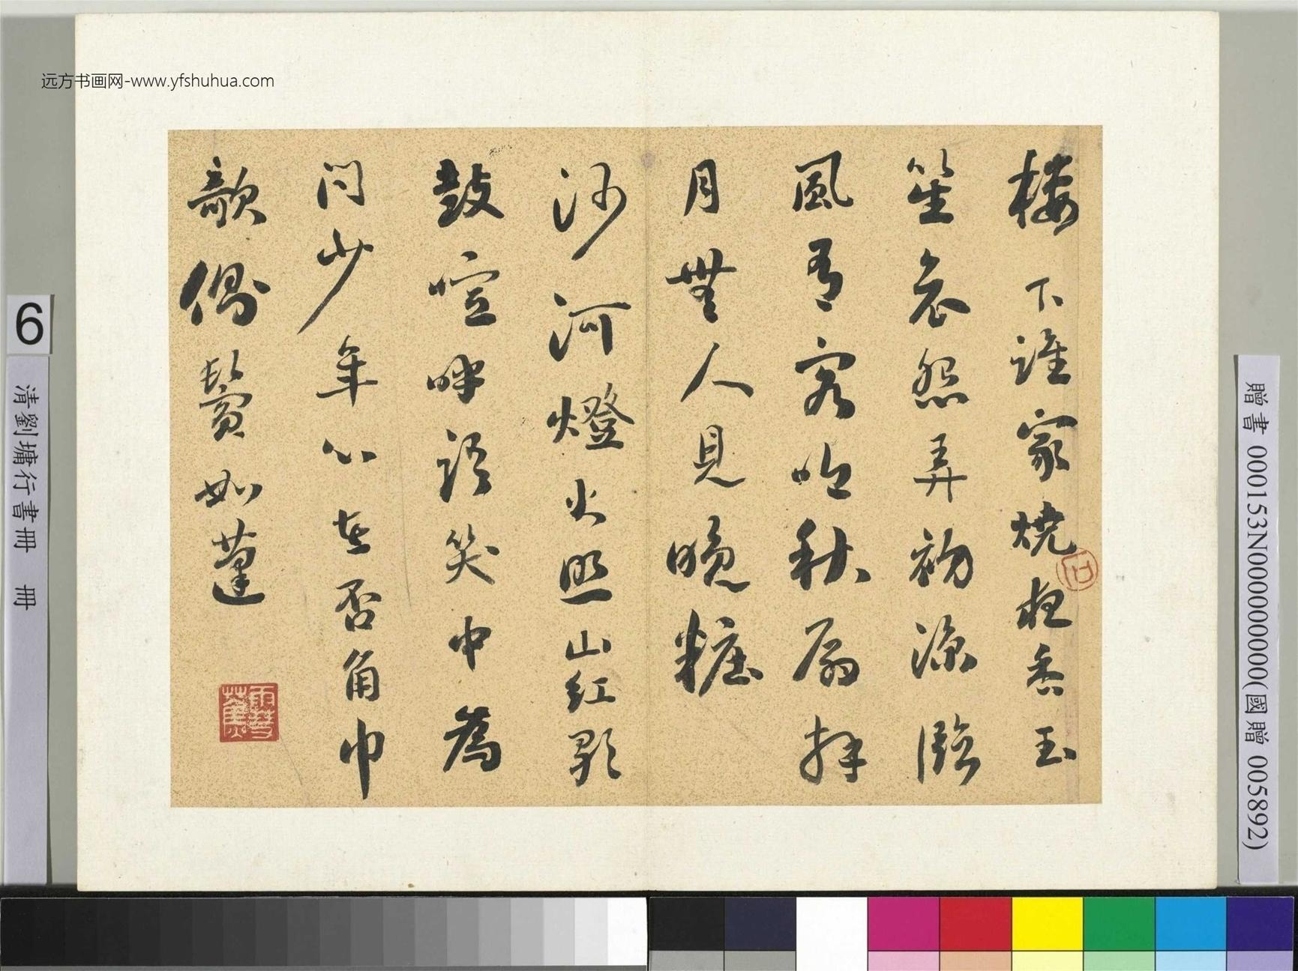 远方书画网-www.yfshuhua.com
樓下誰家燒夜香玉
笙哀怨弄初涼臨
風有客吟秋扇拜
月無人見晚粧
沙河燈火照山紅歌
鼓喧呼語笑中為
問少年心在否角巾
欹側鬢如蓬
贈書 000153N000000000(國贈 005892)
6
清劉墉行書冊 冊